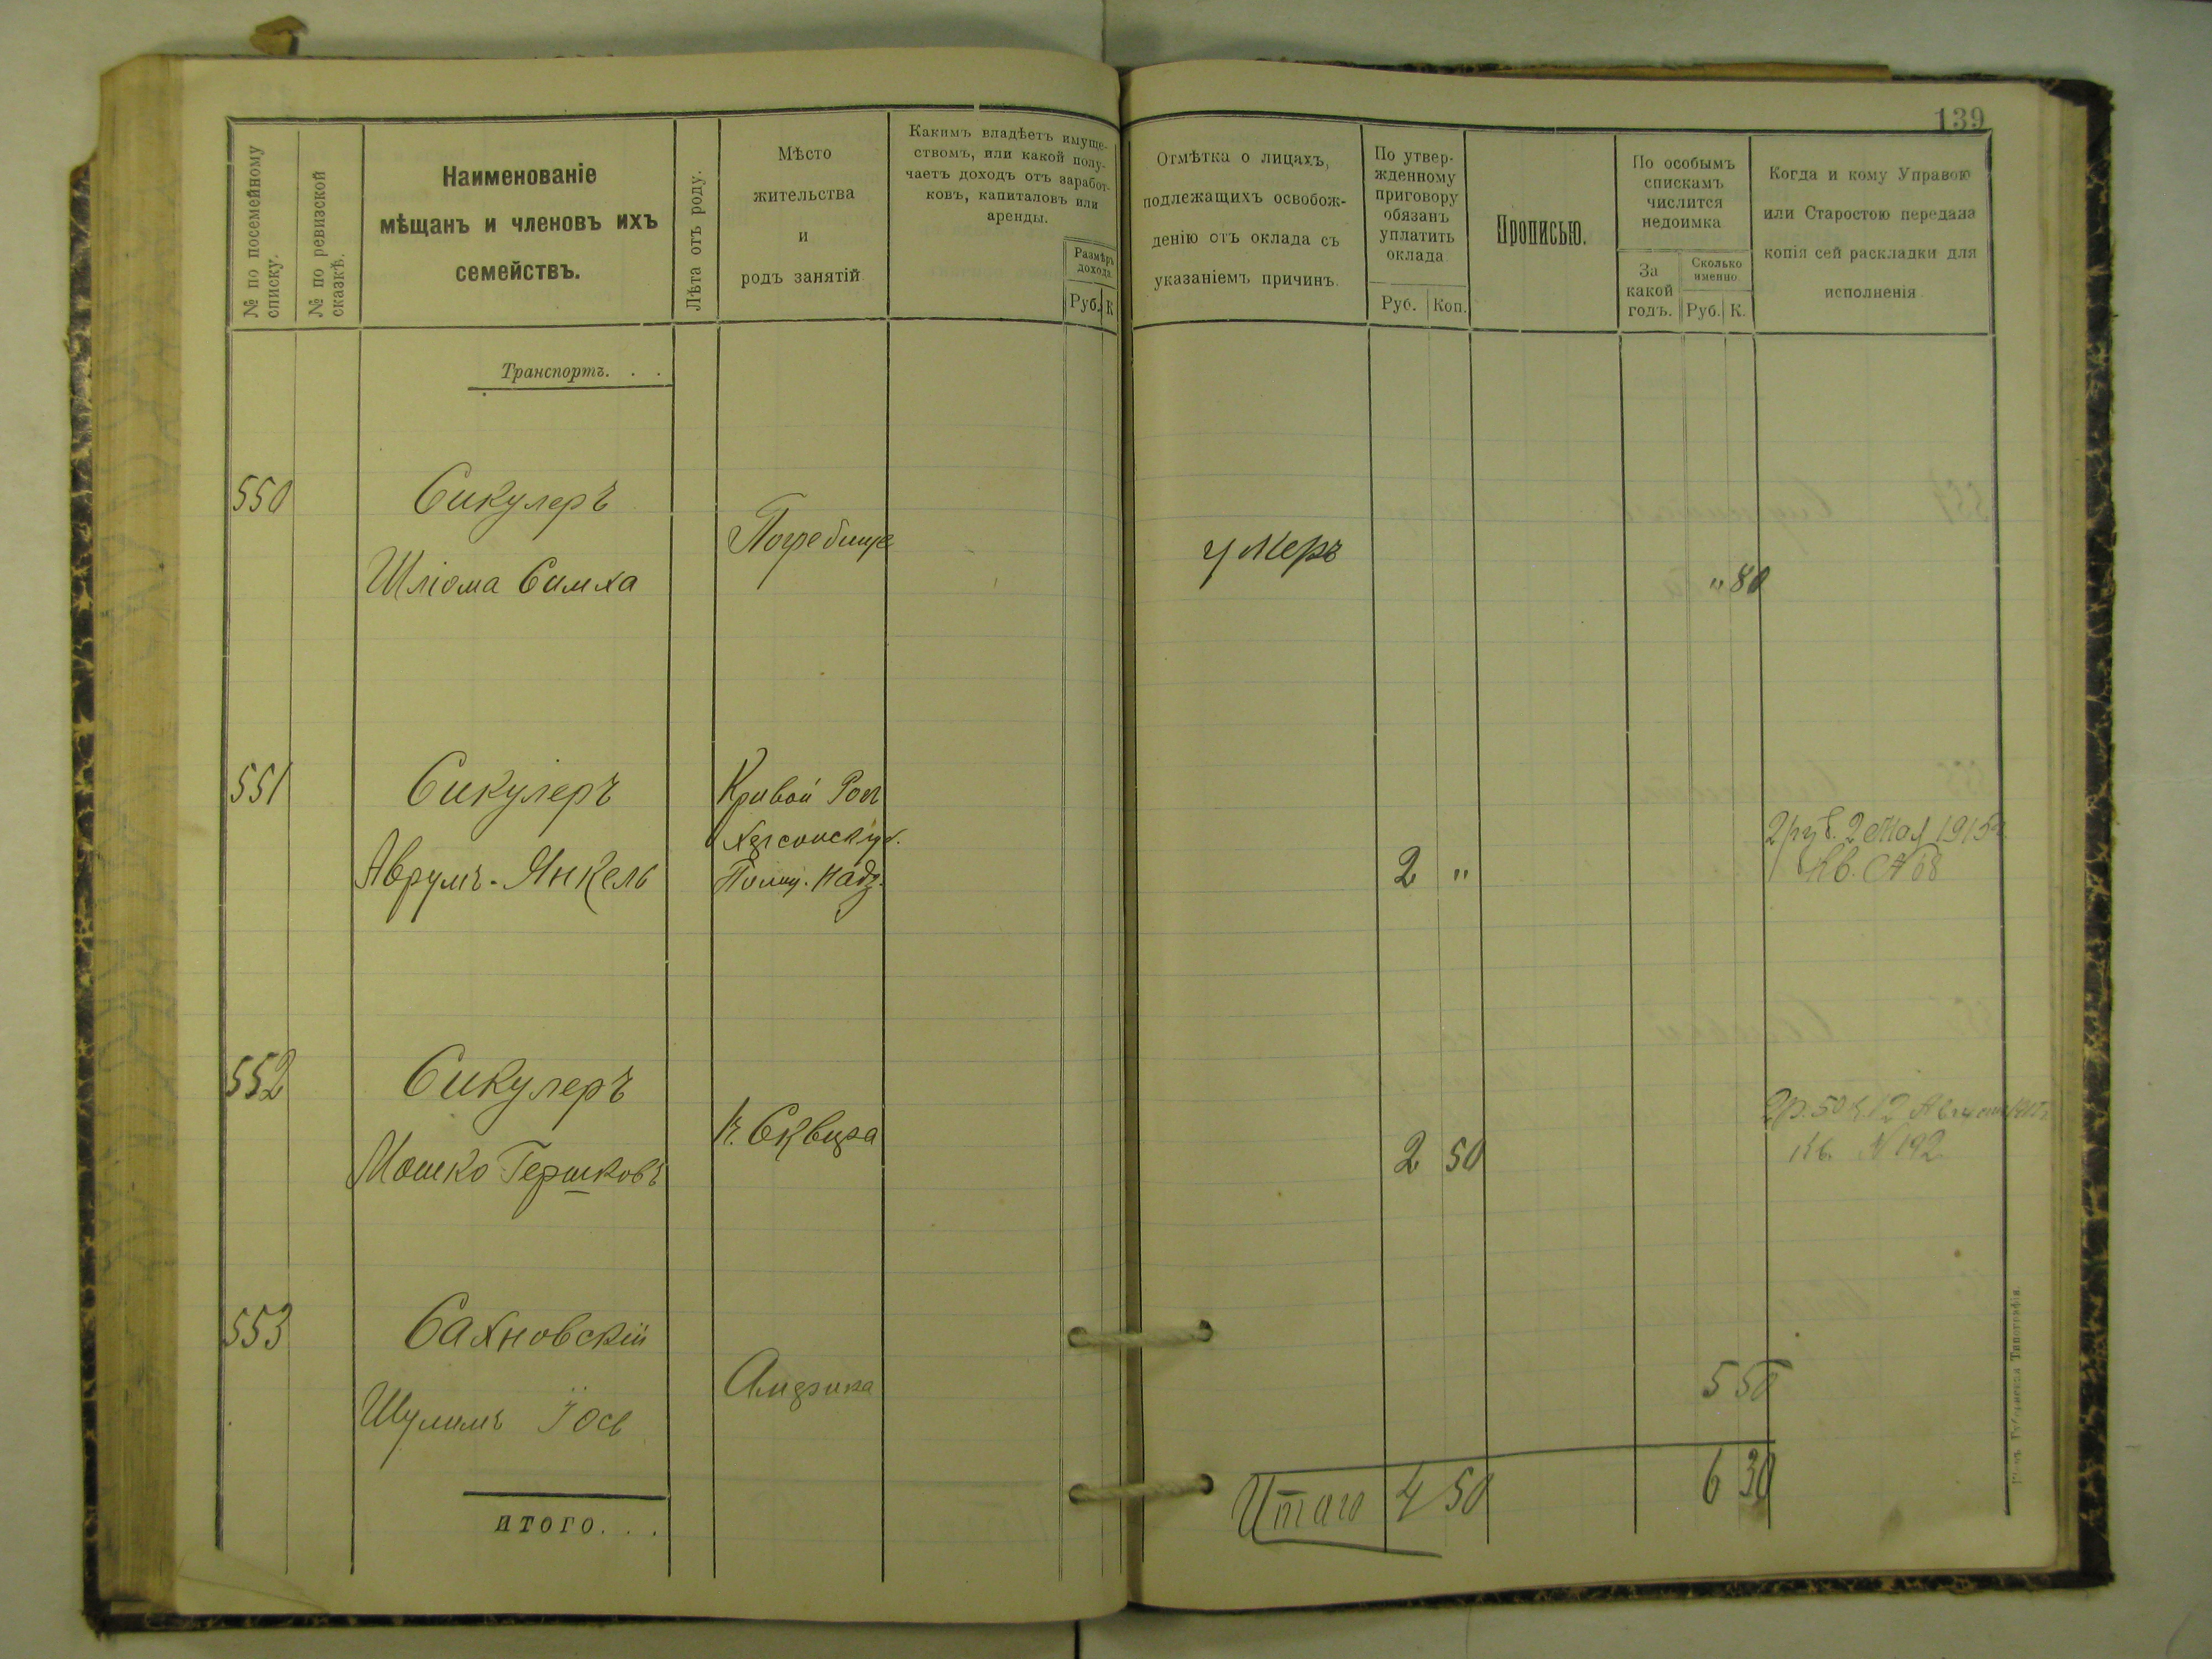 139
№ по посемейному
списку.
№ по ревизской
сказкѣ.
Наименованіе
мѣщанъ и членовъ ихъ
семействъ.
Лѣта отъ роду.
Мѣсто
жительства
и
родъ занятій.
Какимъ владѣетъ имуще-
ствомъ, или какой полу-
чаетъ доходъ отъ заработ-
ковъ, капиталовъ или
аренды.
Размѣръ
дохода.
Руб. К
Отмѣтка о лицахъ,
подлежащихъ освобож-
денію отъ оклада съ
указаніемъ причинъ.
По утвер-
жденному
приговору
обязанъ
уплатить
оклада
Руб. Коп.
Прописью.
По особымъ
спискамъ
числится
недоимка
За
какой
годъ.
Сколько
именно.
Руб. К.
Когда и кому Управою
или Старостою передана
копія сей раскладки для
исполненія
Транспортъ. . .
550
Сикулеръ
Шліома Симха
Погребище
умеръ
" 80
551
Сикулеръ
Аврумъ-Янкель
Кривой Рогъ
Херсонск. у.
Полиц. Надз.
2 "
2 руб. 2 Мая 1915 г.
Кв. № 68
552
Сикулеръ
Мошко Гершковъ
г. Сквира
2 50
2 р. 50 к. 12 Августа 1915 г.
Кв. № 192
553
Сахновскій
Шулимъ Іось
Америка
5 50
итого. . .
Итого 4 50
6 30
Типографія.